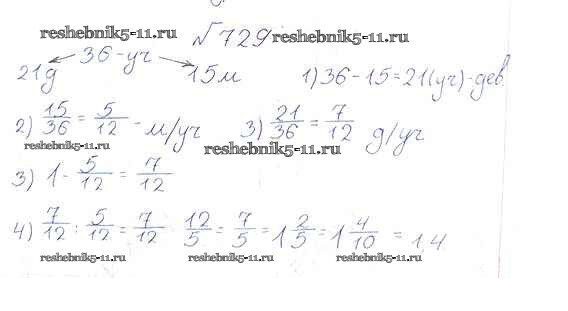 reshebnik5-11.ru √729 reshebnik5-11.ru
36-уч
21д 15м 1) 36-15=21(уч)-дев.
2) 15/36 = 5/12 - м/уч 3) 21/36 = 7/12 д/уч
reshebnik5-11.ru reshebnik5-11.ru
3) 1 - 5/12 = 7/12
4) 7/12 : 5/12 = 7/12 · 12/5 = 7/5 = 1 2/5 = 1 4/10 = 1,4
reshebnik5-11.ru reshebnik5-11.ru reshebnik5-11.ru